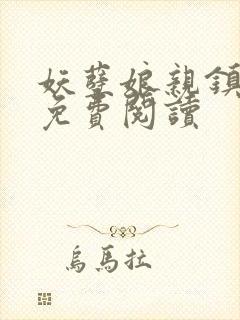 妖孽娘親鎮
免費閱讀
烏馬拉